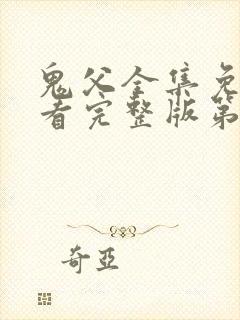 鬼父全集免
看完整版第
奇亞